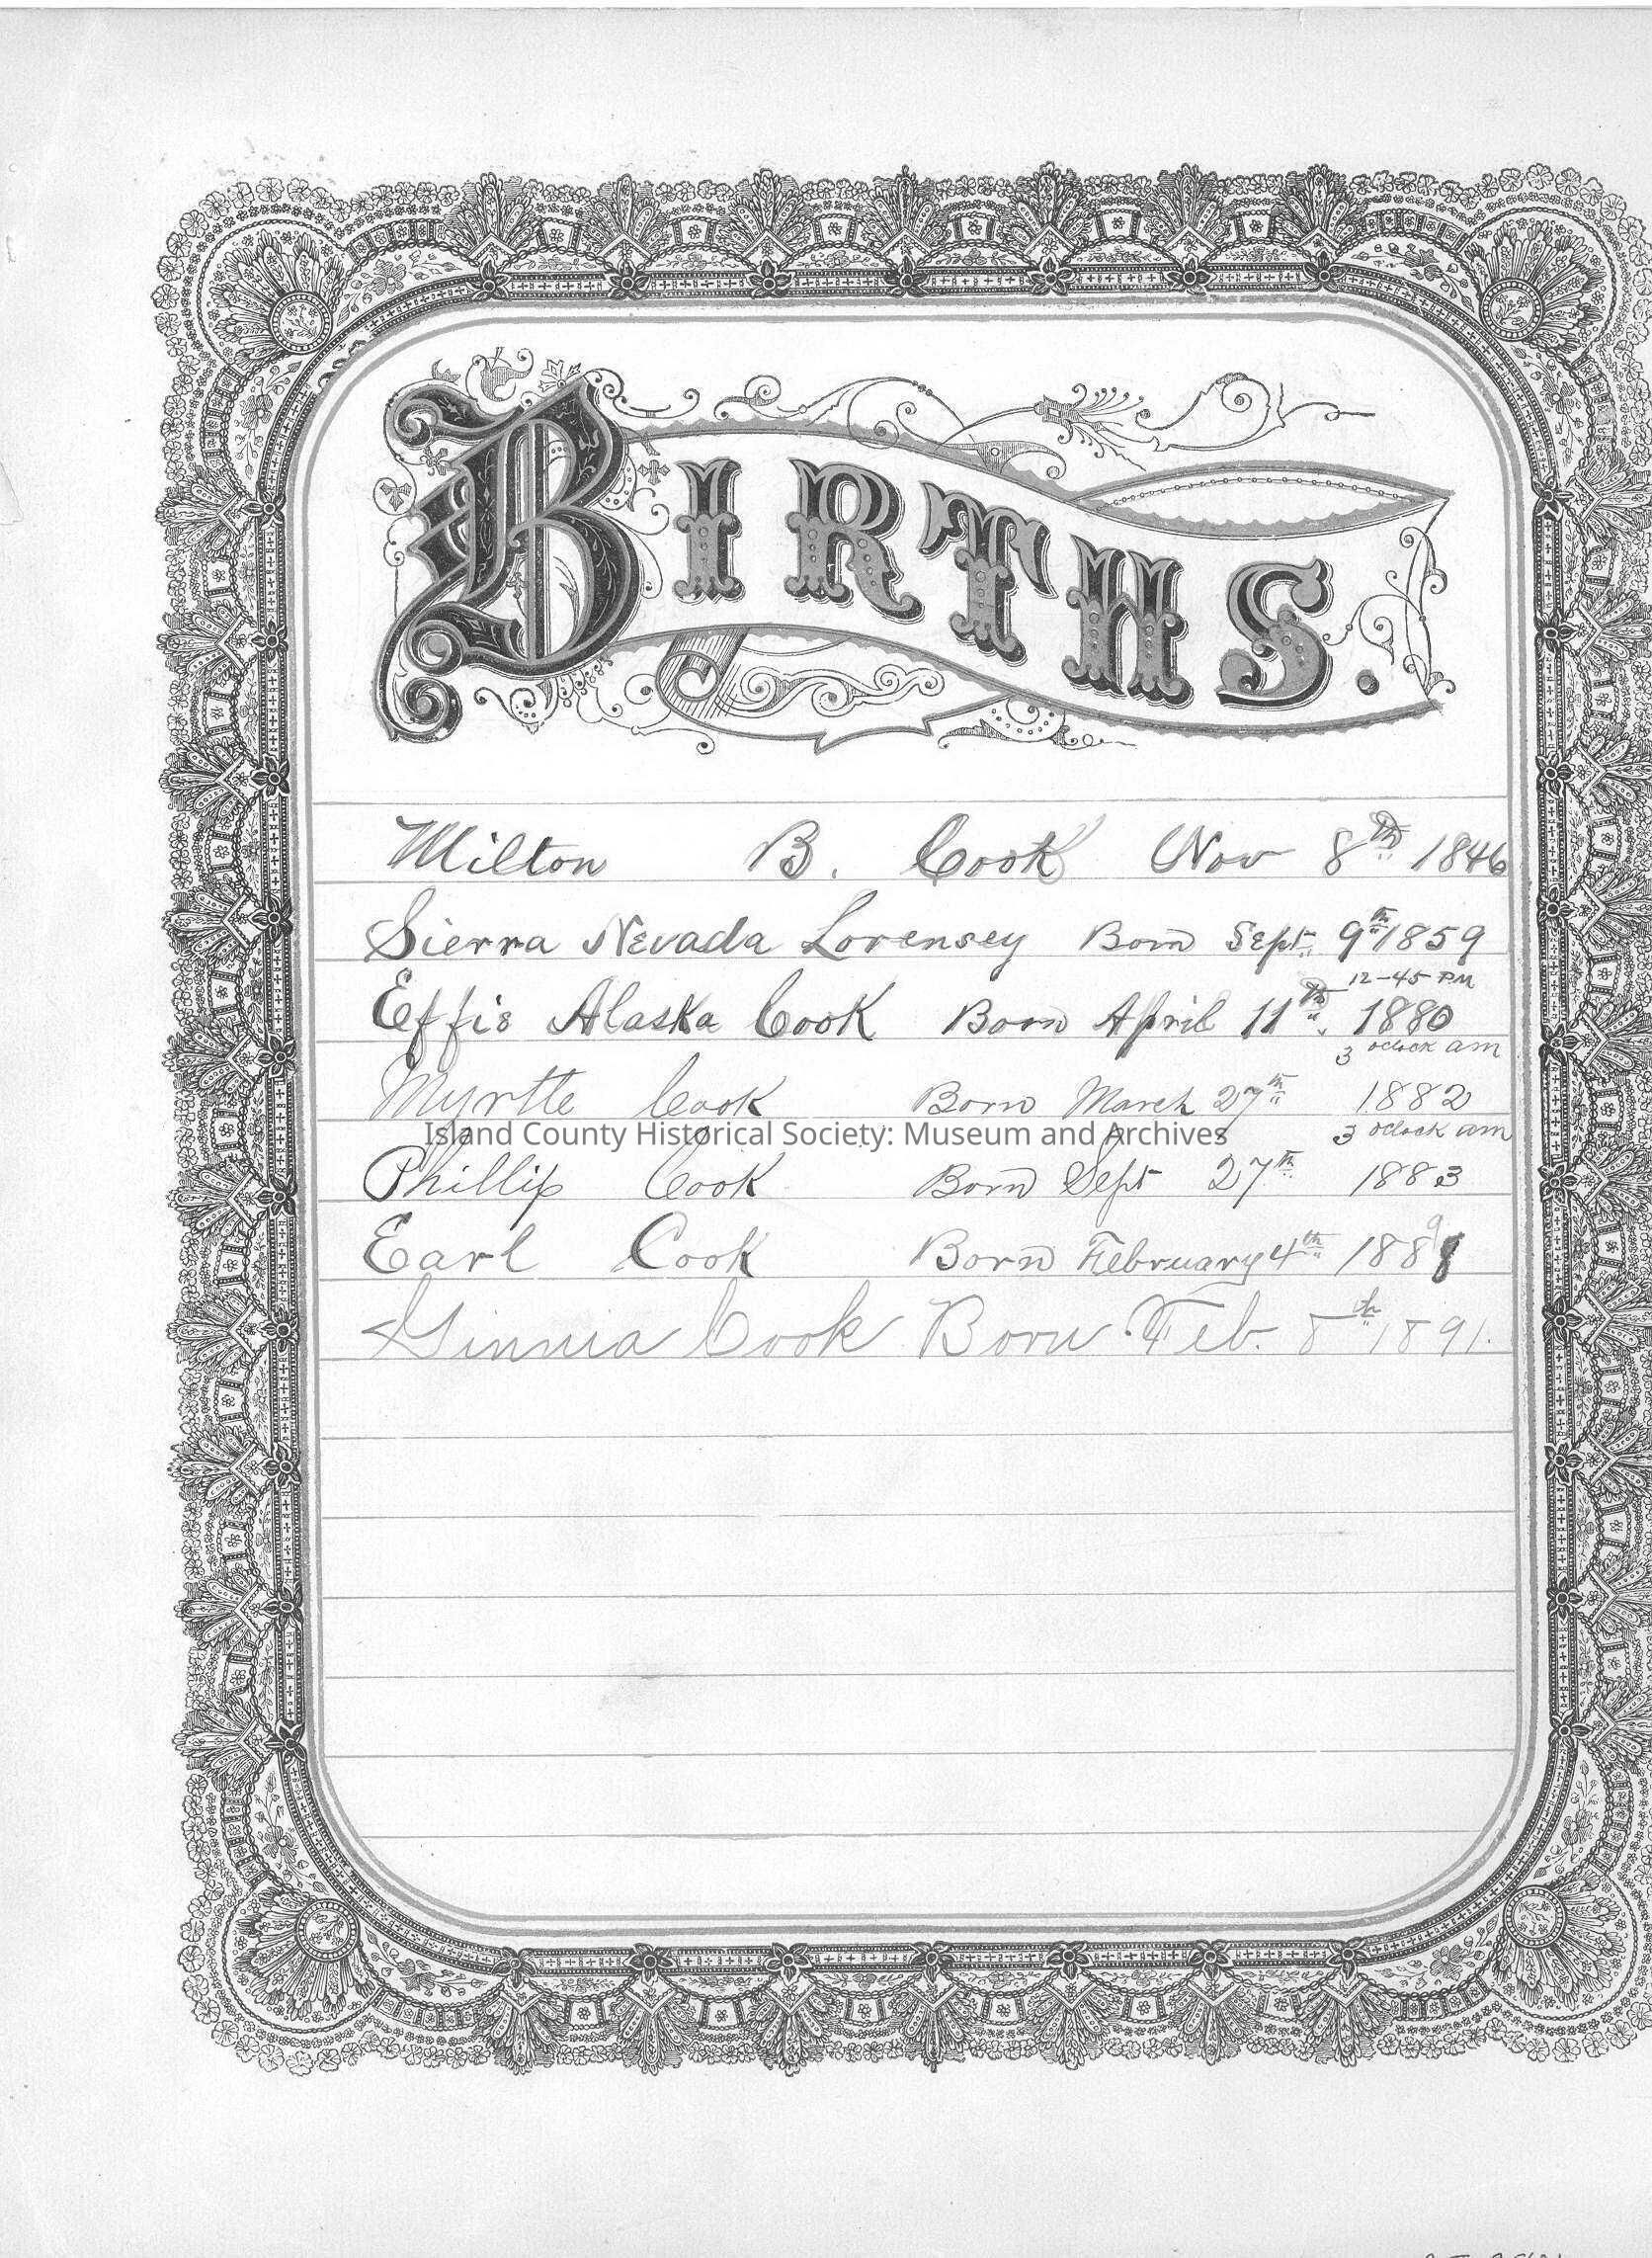 BIRTHS.
Milton B. Cook Nov 8th 1846
Sierra Nevada Lorensey Born Sept. 9th 1859
12-45 PM
Effie Alaska Cook Born April 11th 1880
3 oclock am
Myrtle Cook Born March 27th 1882
Island County Historical Society: Museum and Archives
3 oclock am
Phillip Cook Born Sept 27th 1883
Earl Cook Born February 4th 188
Ginnia Cook Born Feb. 8th 1891.